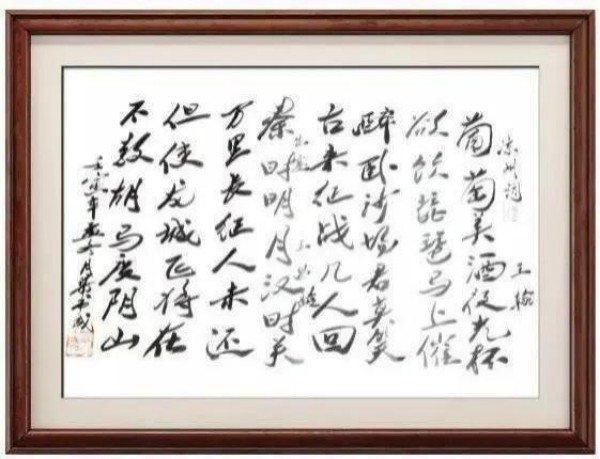 凉州词
王翰
葡萄美酒夜光杯
欲饮琵琶马上催
醉卧沙场君莫笑
古来征战几人回
出塞
王昌龄
秦时明月汉时关
万里长征人未还
但使龙城飞将在
不教胡马度阴山
壬寅年月